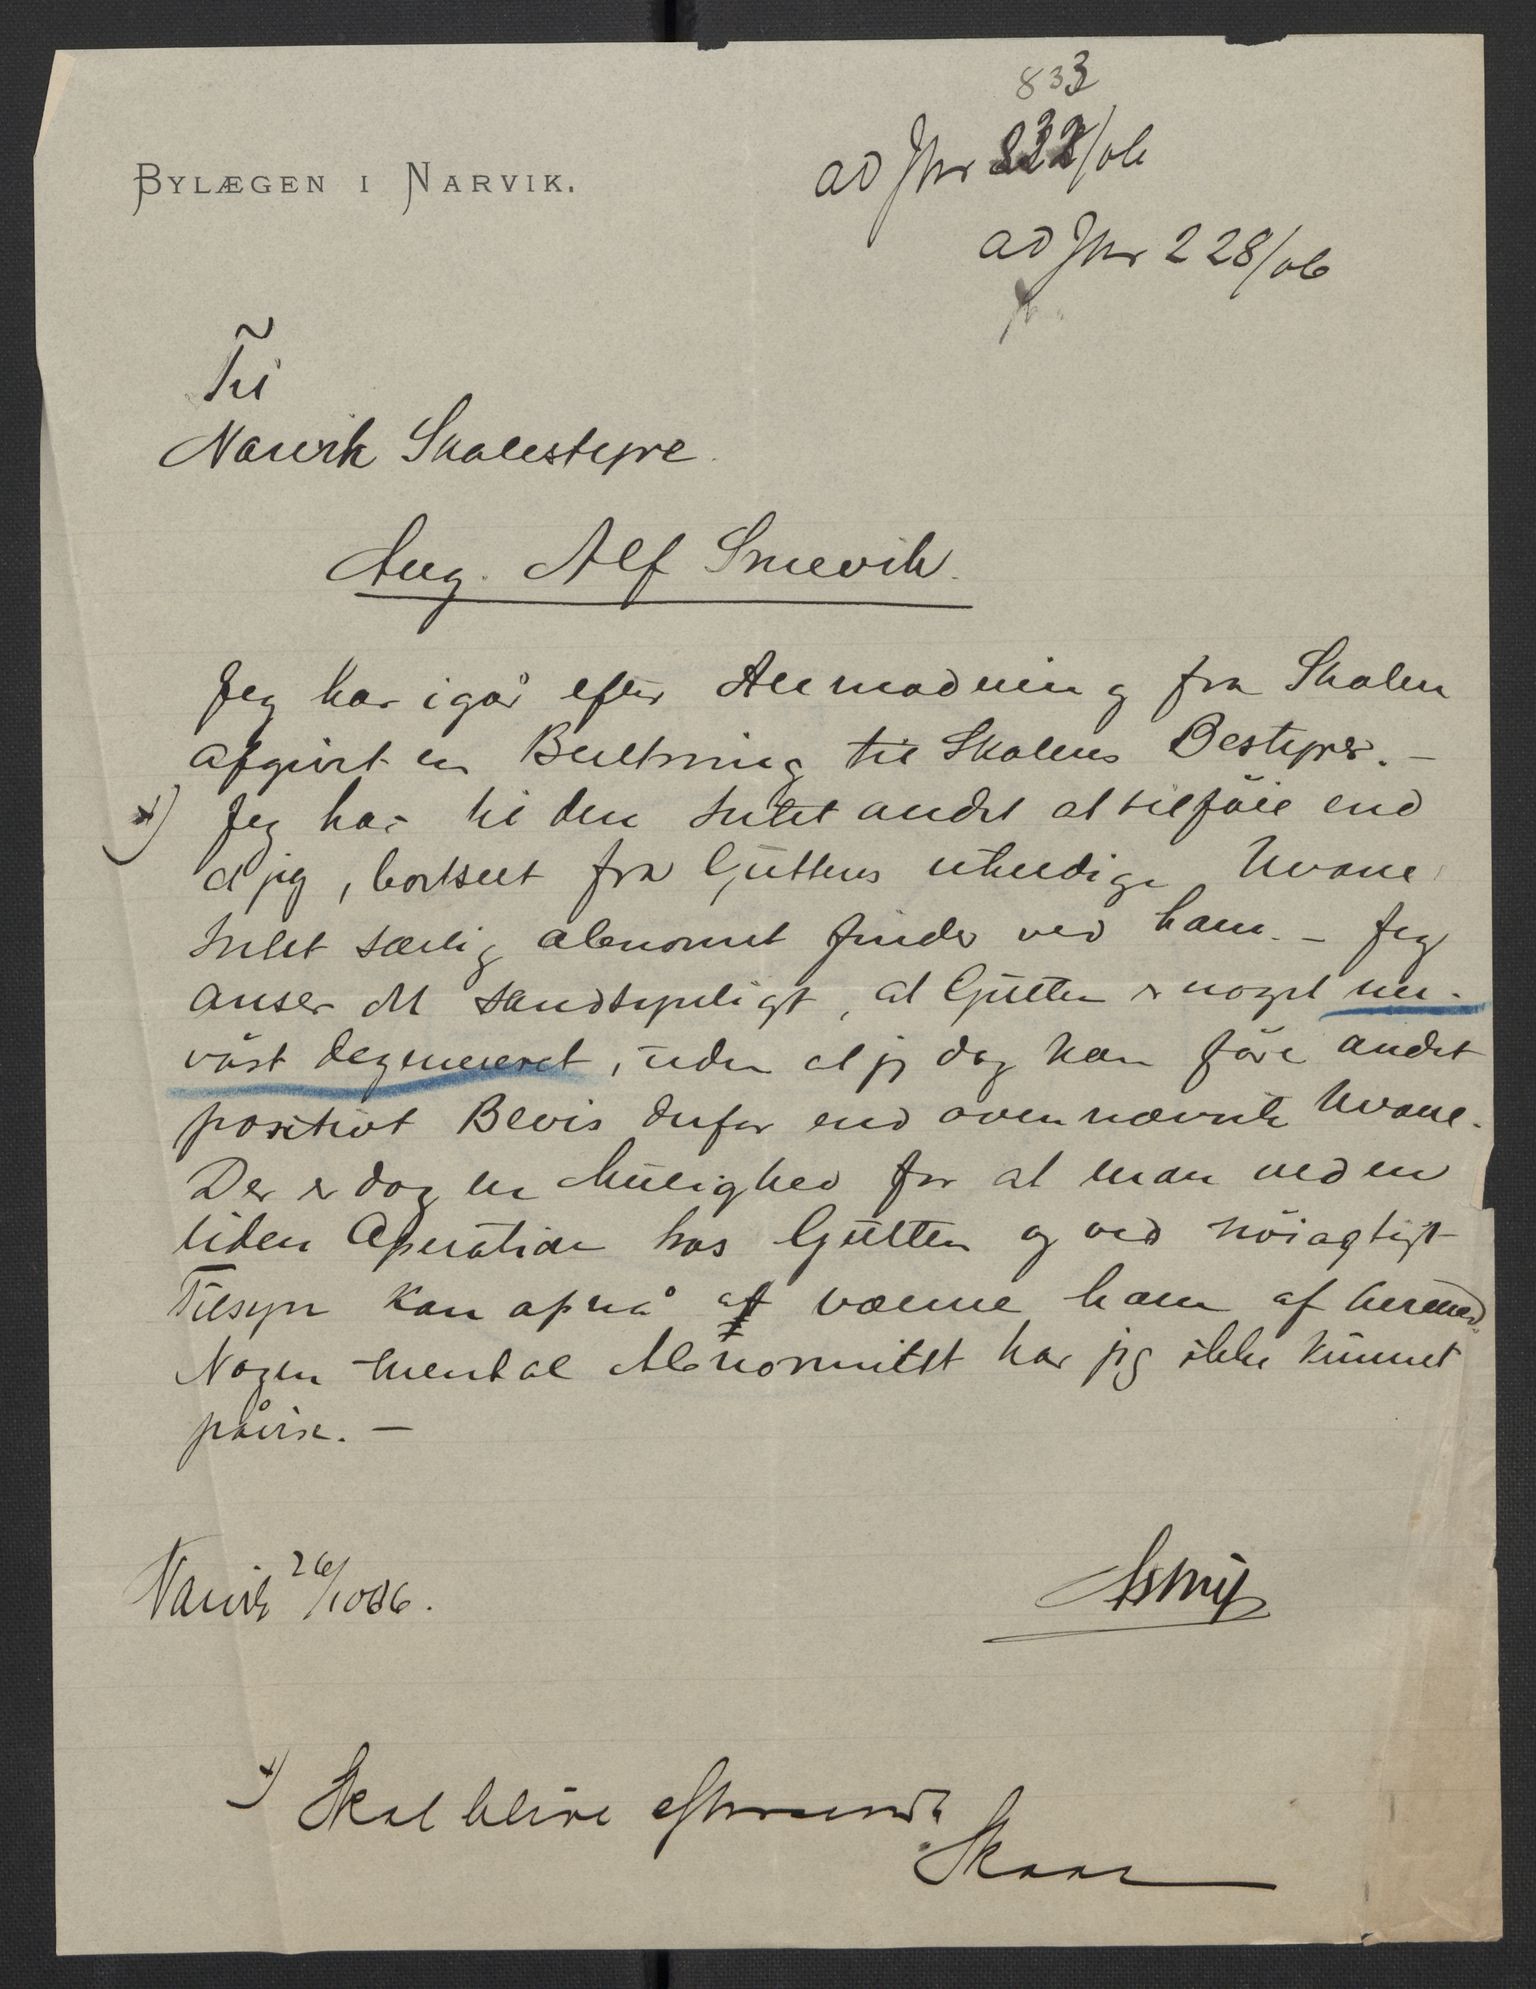 833
BYLÆGEN I NARVIK.
ad Jnr 832/06
ad Jnr 228/06
Til
Narvik Skolestyre.
Aug. Alf Smevik.
Jeg har igår efter Anmodning fra Skolen
afgivet en Beretning til Skolens Bestyrer. –
x) Jeg har til den Intet andet at tilföie end
at jeg, bortseet fra Guttens uheldige Uvane
Intet særlig abnormt finder ved ham. – Jeg
anser det sandsynligt, at Gutten er noget ner-
vöst degenereret, uden at jeg dog kan före andet
positivt Bevis derfor end ovennævnte Uvane.
Der er dog en Mulighed for at man ved en
liden Operation hos Gutten og ved nöiagtigt
Tilsyn kan opnå at vænne ham af hermed.
Nogen mental Abnormitet har jeg ikke kunnet
påvise. –
Narvik 26/10 06.
x) Skal blive eftersendt
Skaar